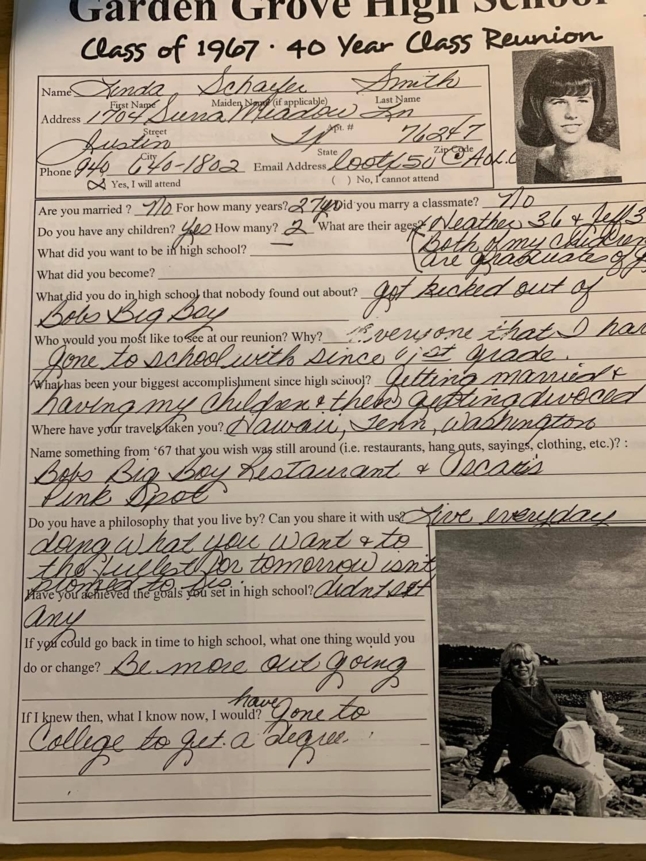 Garden Grove High School
Class of 1967 · 40 Year Class Reunion
Name Linda Schafer Smith
First Name Maiden Name (if applicable) Last Name
Address 1704 Sierra Meadow Ln
Street Apt. #
Justin 76247
City State Zip Code
Phone 940 640-1802 Email Address @AOL.C
Yes, I will attend ( ) No, I cannot attend
Are you married ? No For how many years? 27yr Did you marry a classmate? No
Do you have any children? yes How many? 2 What are their ages? Heather 36 & Jeff 3
What did you want to be in high school? (Both of my children
are graduates of
What did you become?
What did you do in high school that nobody found out about? got kicked out of
Bobs Big Boy
Who would you most like to see at our reunion? Why? Everyone that I hav
gone to school with since 1st grade.
What has been your biggest accomplishment since high school? Getting married &
having my children & then getting divoced
Where have your travels taken you? Hawaii, Tenn, Washington
Name something from '67 that you wish was still around (i.e. restaurants, hang outs, sayings, clothing, etc.)? :
Bobs Big Boy Restaurant & Oscar's
Pink Spot
Do you have a philosophy that you live by? Can you share it with us? Live everyday
doing what you want & to
the fullest for tomorrow isn't
promised to us.
Have you achieved the goals you set in high school? didnt set
any
If you could go back in time to high school, what one thing would you
do or change? Be more out going
If I knew then, what I know now, I would? have gone to
College to get a degree.